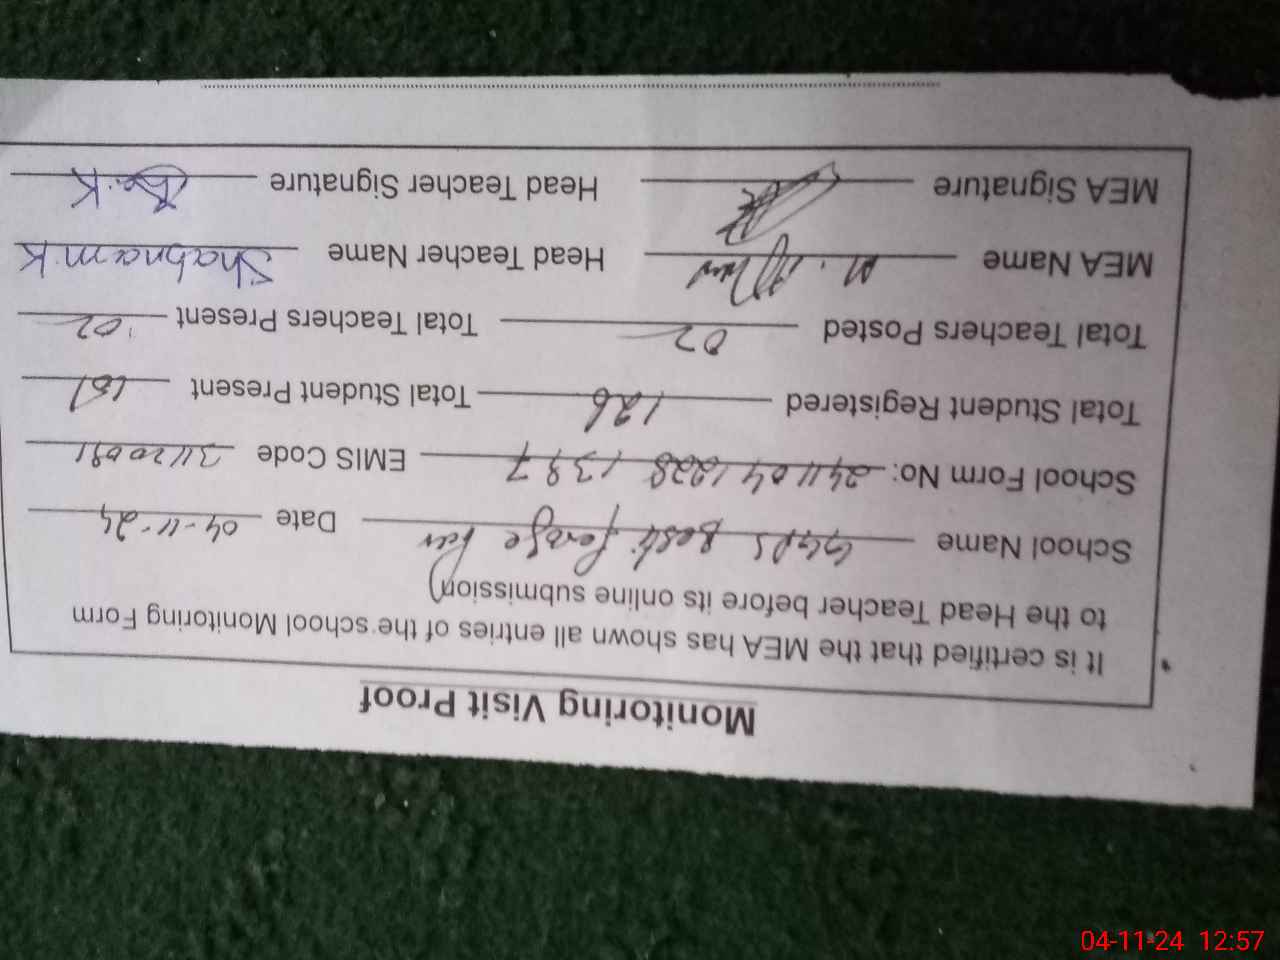 Monitoring Visit Proof
It is certified that the MEA has shown all entries of the school Monitoring Form
to the Head Teacher before its online submission
School Name GGPS Basti feroze Pur Date 04-11-24
School Form No: 24110412281397 EMIS Code
Total Student Registered 126 Total Student Present
Total Teachers Posted 02 Total Teachers Present 02
MEA Name M. Head Teacher Name Shabnam K
MEA Signature Head Teacher Signature
04-11-24 12:57